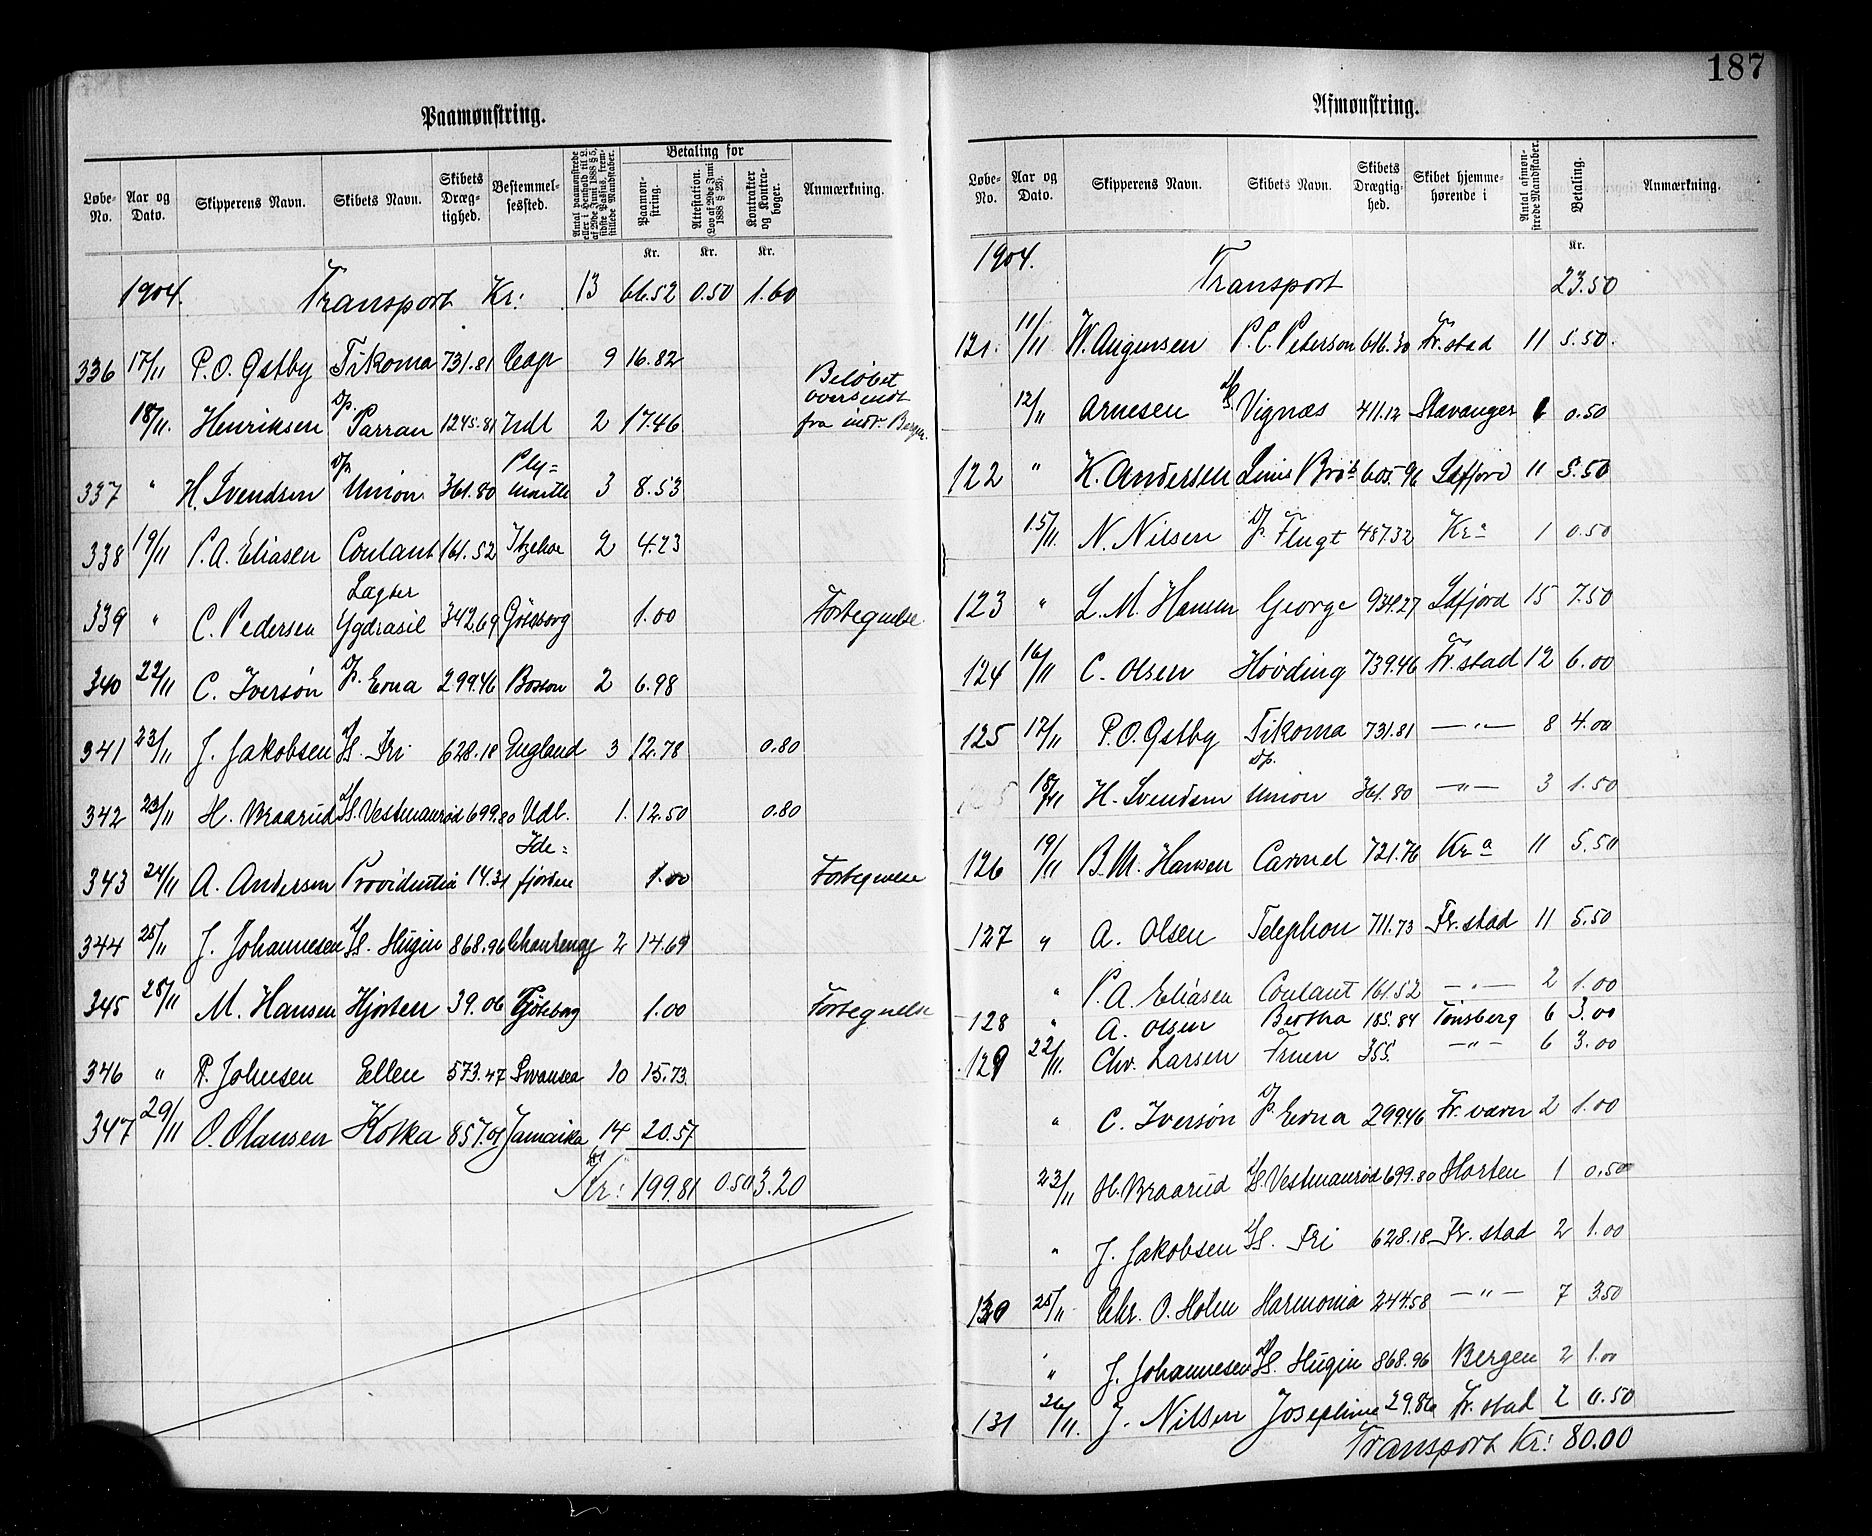 187
Paamønstring.
Løbe-No. Aar og Dato. Skipperens Navn. Skibets Navn. Skibets Dræg-tighed. Bestemmel-sessted. Betaling for Paamøn-string. Attestation. (Lov af 29de Juni 1888 § 23). Kontrakter og Kontra-bøger. Anmærkning.
Kr. Kr. Kr.
1904. Transport Kr: 13 66.52 0.50 1.60
336 17/11 P.O. Østby Tikoma 731.81 Cap 9 16.82
18/11. Henriksen D/p. Parran 1245.81 Udl 2 17.46 Beløbet oversendt fra indr. Bergen.
337 " H. Svendsen D/p Union 361.80 Ply= mouth 3 8.53
338 19/11 P.A. Eliasen Coulant 161.52 Itzehoe 2 4.23
339 " C. Pedersen Lægter Ygdrasil 342.69 Göteborg 1.00 Forhegnelse
340 22/11 C. Iversøn D/p. Edna 299.46 Boston 2 6.98
341 23/11 J. Jakobsen D/S. Fri 628.18 England 3 12.78 0.80
342 23/11 H. Braarud D/S. Vestmanrød 699.80 Udl. 1. 12.50 0.80
343 24/11 A. Andersen Providentia 14.31 Ide= fjorden 1.00
344 25/11 J. Johannesen D/S. Hugin 868.96 2 14.69
345 28/11 M. Hansen Hjorten 39.06 Göteborg 1.00
346 " P. Johnsen Ellen 573.47 Swansea 10 15.73
347 29/11 O. Olausen Kotka 857.01 Jamaika 14 20.57
Kr: 199.81 0.50 3.20
Afmønstring.
Løbe-No. Aar og Dato. Skipperens Navn. Skibets Navn. Skibets Drægtig-hed. Skibet hjemme-hørende i Antal afmøn-strede Mandskaber. Betaling. Anmærkning.
Kr.
1904. Transport 23.50
121. 11/11 W. Augensen P.C. Peterson 616.30 Fr.stad 11 5.50.
12/11 Arnesen D/S. Vignæs 411.12 Stavanger 1 0.50
122 " K. Andersen Linus Bros 605.96 Idfjord 11 5.50
15/11. N. Nilsen D/p. Flugt 487.32 Kra 1 0.50
123 " L.M. Hansen George 934.27 Idfjord 15 7.50
124 16/11 C. Olsen Høvding 739.46 Fr.stad 12 6.00
125 17/11 P.O. Østby Tikoma 731.81 —"— 8 4.00
18/11 H. Svendsen D/p. Union 361.80 —"— 3 1.50
126 19/11 B.M. Hansen Carmel 721.76 Kra 11 5.50
127 " A. Olsen Telephon 711.73 Fr.stad 11 5.50
" P.A. Eliasen Coulant 161.52 —"— 2 1.00
128 " A. Olsen Bertha 185.84 Tønsberg 6 3.00
129 22/11. Chr. Larsen Fruen 355. —"— 6 3.00
" C. Iversøn D/p. Edna 299.46 Fr. værn 2 1.00
23/11 H. Braarud D/S. Vestmanrød 699.80 Horten 1 0.50
" J. Jakobsen D/S. Fri 628.18 Fr. stad 2 1.00
130 25/11 Chr. O. Holm Harmonia 244.58 —"— 7 3.50
" J. Johannesen D/S. Hugin 868.96 Bergen 2 1.00
131 26/11. J. Nilsen Josephine 29.86 Fr. stad 2 0.50
Transport Kr: 80.00